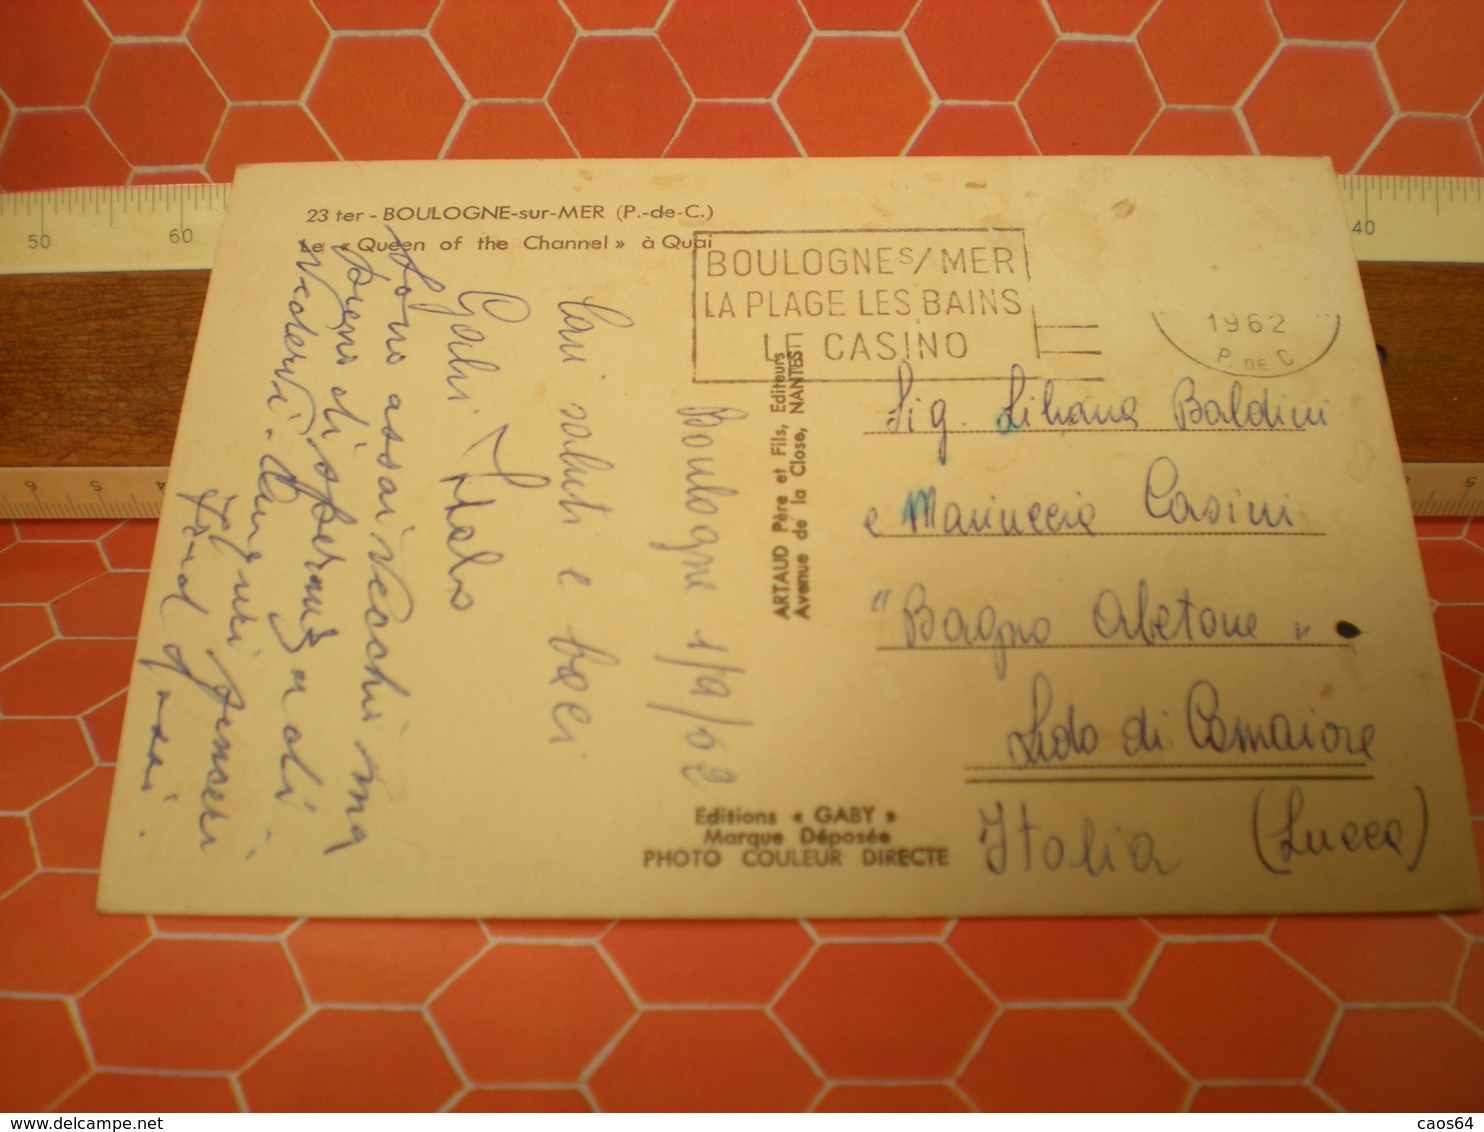 23 ter - BOULOGNE-sur-MER (P.-de-C.)
Le « Queen of the Channel » à Quai
BOULOGNE S/MER
LA PLAGE LES BAINS
LE CASINO
1962
P. DE C
Boulogne 1/9/62
Cari saluti e baci
Italo
Sono assai vecchi ma
pieno di speranza
Vedervi.
ARTAUD Père et Fils, Editeurs
Avenue de la Close, NANTES
Sig. Liliana Baldini
e Marinuccia Casini
"Bagno Abetone"
Lido di Camaiore
(Lucca)
Italia
Editions « GABY »
Marque Déposée
PHOTO COULEUR DIRECTE
50 60
40
6 5
5
caos64